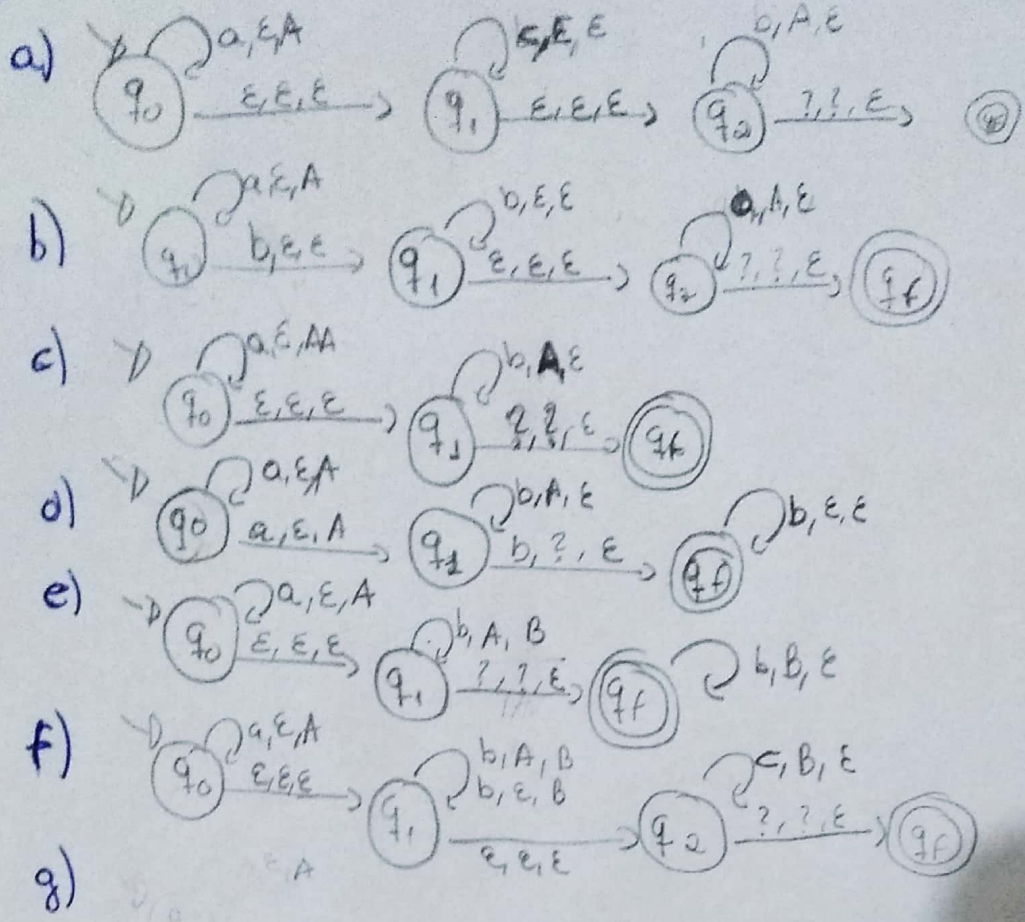 a) q0 a, ε, A ε, ε, ε q1 c, ε, ε ε, ε, ε q2 b, A, ε ?, ?, ε
b) a, ε, A b, ε, ε q1 b, ε, ε ε, ε, ε q2 A, ε ?, ?, ε qf
c) q0 a, ε, AA ε, ε, ε q1 b, A, ε ?, ?, ε qf
d) q0 a, ε, A a, ε, A q1 b, A, ε b, ?, ε qf b, ε, ε
e) q0 a, ε, A ε, ε, ε q1 b, A, B ?, ?, ε qf b, B, ε
f) q0 a, ε, A ε, ε, ε q1 b, A, B b, ε, B ε, ε, ε q2 c, B, ε ?, ?, ε qf
g) ε, A